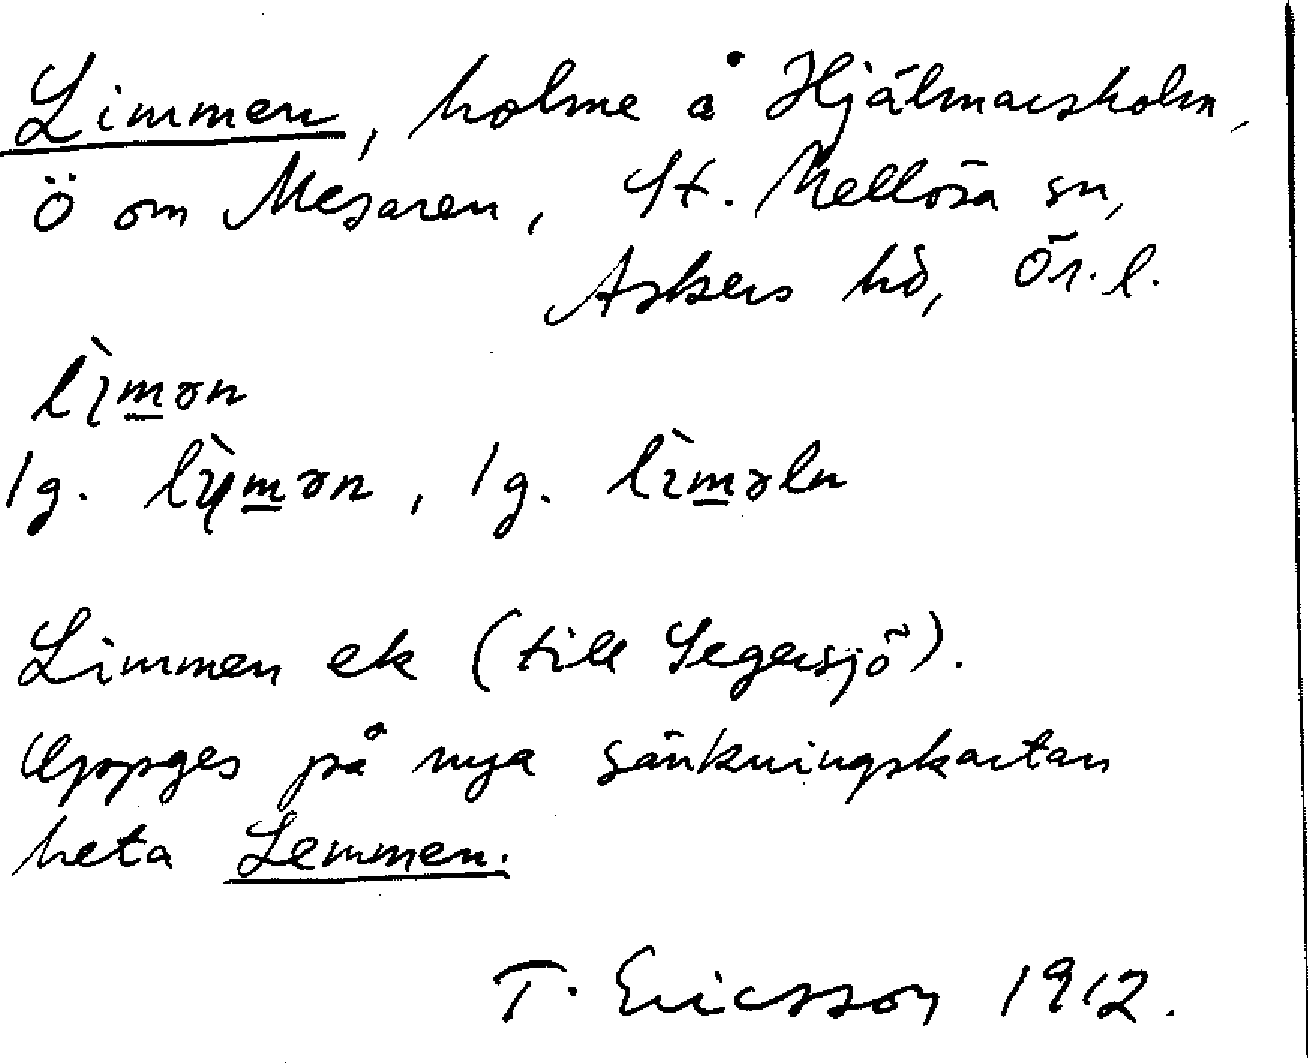 Limmen, holme å Hjälmarsholm,
Ö om Mesaren, St. Mellösa sn,
Askers hd, Ör. l.
lìmən
/g. lỳmən, /g. lìməln
Limmen ek (till Segersjö).
Uppges på nya sänkningskartan
heta Lemmen.
T. Ericsson 1912.